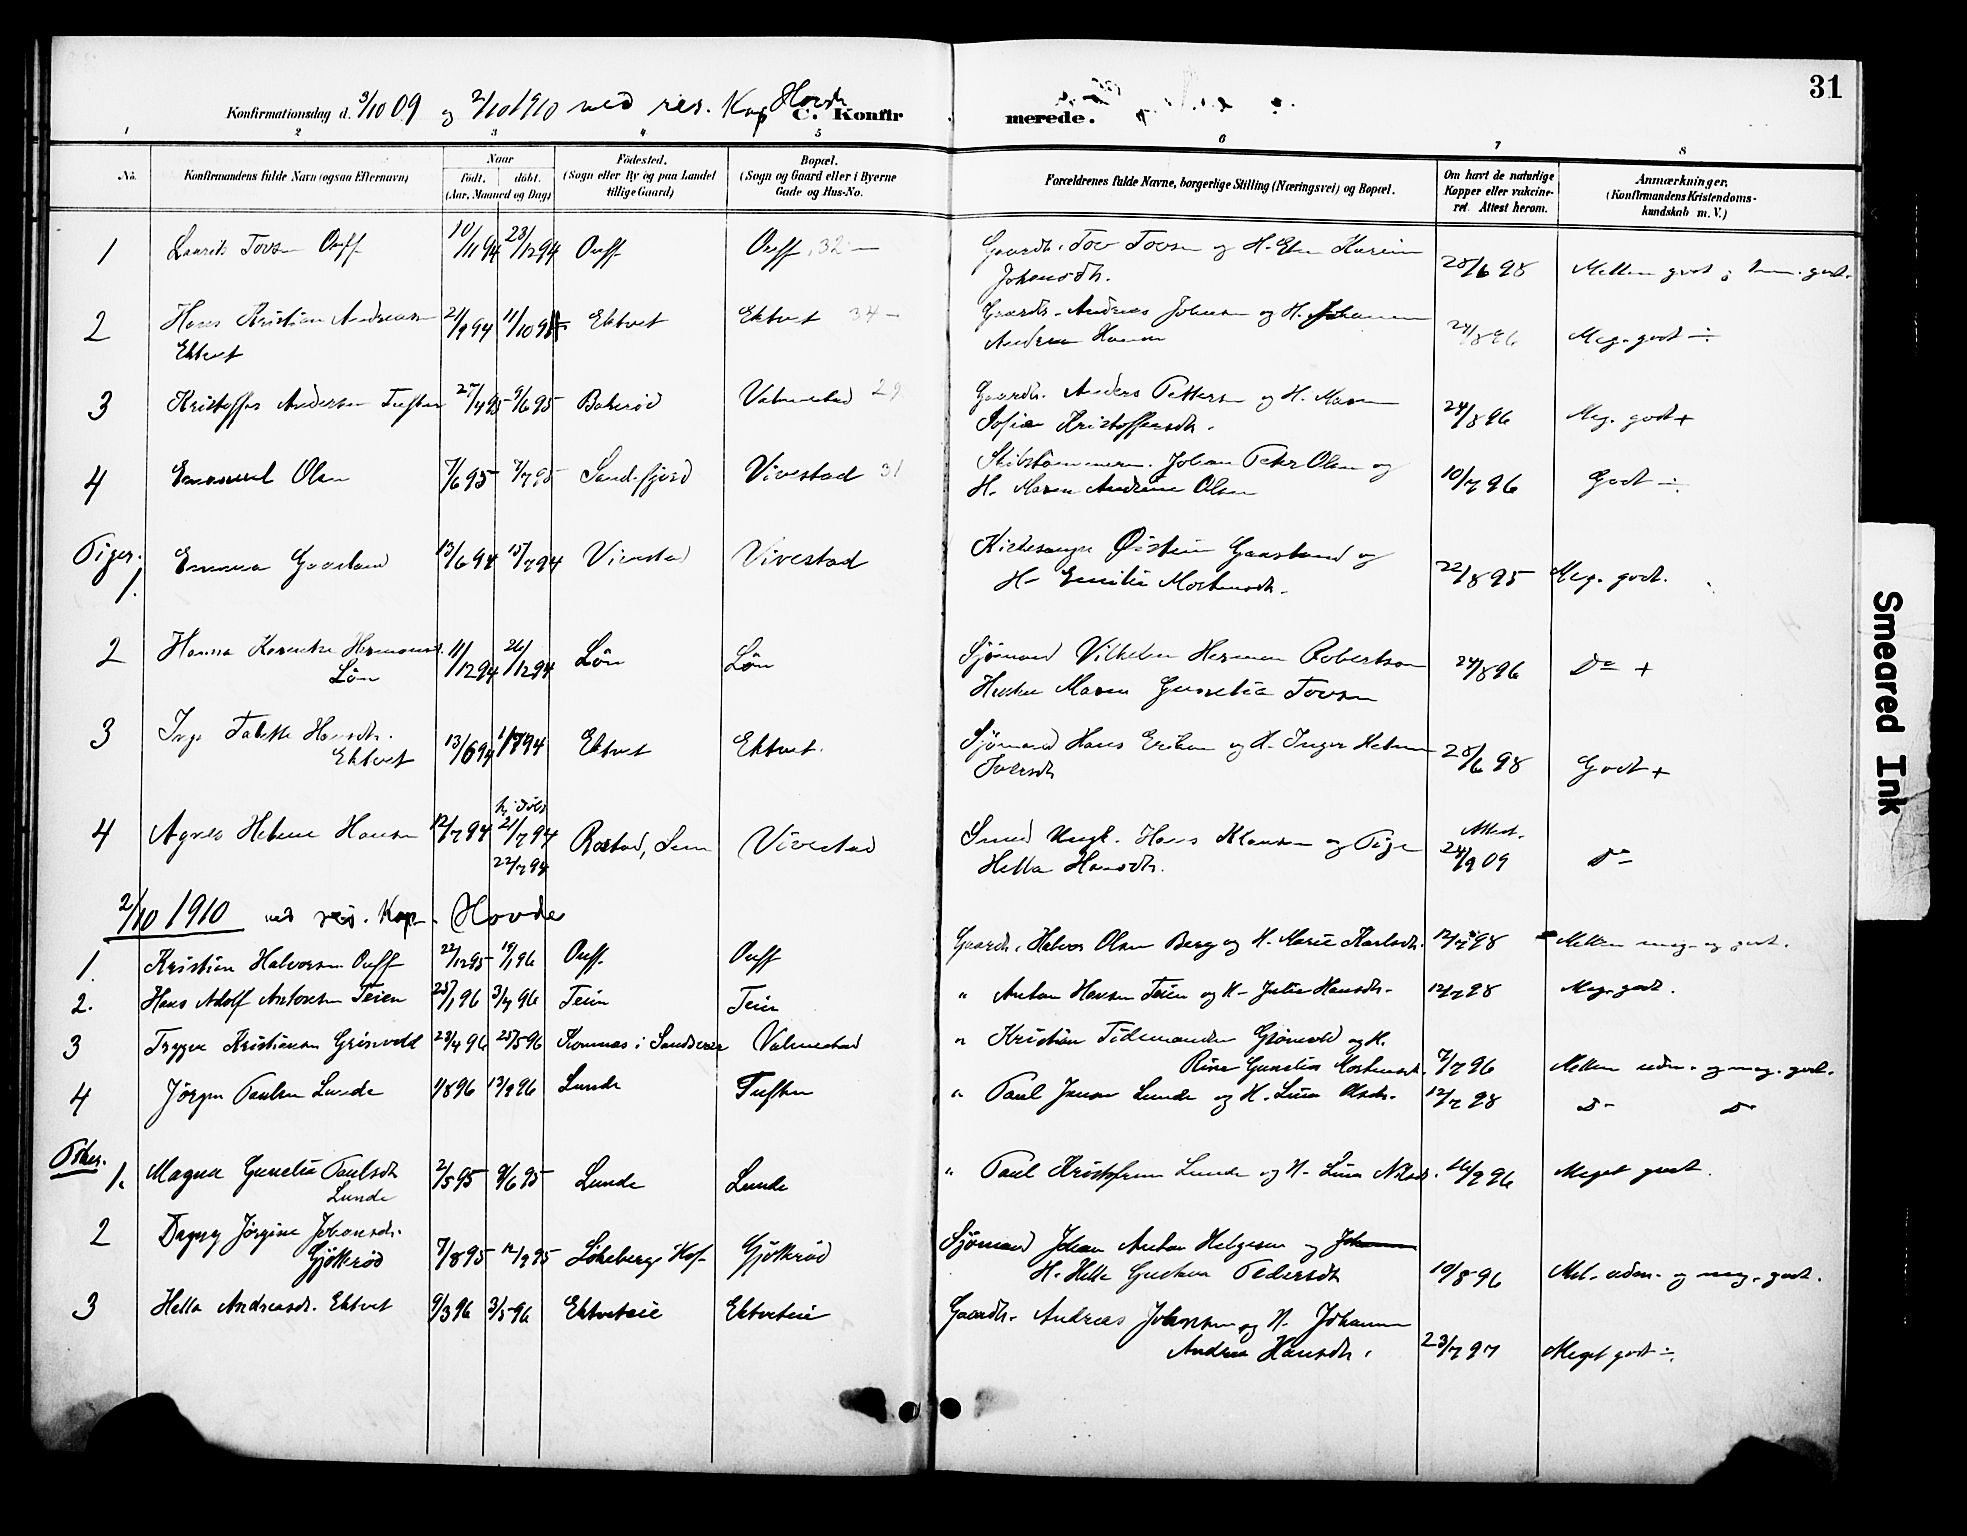 31
Konfirmationsdag d. 3/10 09 og 2/10 1910 ved res. Kap Hovde
C. Konfirmerede.
1 2 3 4 5 6 7 8
No.
Konfirmandens fulde Navn (ogsaa Efternavn)
Naar
født. døbt.
(Aar, Maaned og Dag)
Fødested.
(Sogn eller By og paa Landet
tillige Gaard)
Bopæl.
(Sogn og Gaard eller i Byerne
Gade og Hus-No.
Forældrenes fulde Navne, borgerlige Stilling (Næringsvei) og Bopæl.
Om havt de naturlige
Kopper eller vakcine-
ret. Attest herom.
Anmærkninger.
(Konfirmandens Kristendoms-
kundskab m. V.)
1 Laurits Tovsen 10/11 94 23/12 94 32 Gaardb. Tov Tovsen og H. Karine
Johansdtr. 28/6 98 Mellem godt
2 Hans Kristian Andreasen 21/9 94 11/10 94 Ektvet Ektvet 34 Gaardb. Andreas Johnsen og H. Johanne
Ektvet Andrea 24/8 96 Meg. godt ÷
3 Kristoffer Andersen Tuften 27/4 95 9/6 95 Bakerød Valmestad 29 Gaardb. Anders Pettersen og H. Maren
Sofie Kristoffersdtr. 24/8 96 Meg. godt +
4 Emanuel Olsen 7/6 95 7/7 95 Sandefjord Vivestad 31 Skibstømmerm. Johan Peter Olsen og
H. Maren Andrine Olsen 10/7 96 Godt ÷
Piger.
1. Emma Gaasland 13/6 94 15/7 94 Vivestad Vivestad Kirkesanger Østein Gaasland og
H. Emilie Mortensdtr. 22/8 95 Meg. godt.
2 Hanna 11/12 94 26/12 94 Løn Løn Sjømand Vilhelm Herman Robertsen
Løn Hustru Maren Gunelia Tovsen 24/8 96 Do +
3 Inga Hansdtr. 13/6 94 94 Ektvet Ektvet. Sjømand Hans Eriksen og H. Inger Helene
Ektvet Iversdtr 28/6 98 Godt +
4 Agnes Helene Hansen 12/7 94 hj. døbt 21/7 94 22/7 94 Rastad, Sem Vivestad Smed Ungk. Hans Klausen og Pige
Hella Hansdtr. Attest. 24/9 09 Do
2/10 1910 ved res. Kap. Hovde
1. Kristian Halvorsen 22/12 95 19/1 96 Gaardb. Halvor Olsen Berg og H. Marie Karlsdtr. 12/7 98 Mellem meg. og godt.
2. Hans Adolf Antonsen Teien 25/1 96 3/4 96 Teien Teien " Anton Hansen Teien og H. Julie Hansdtr. 12/7 98 Meg. godt.
3 Trygve Kristiansen Grønvold 23/4 96 25/5 96 Komnes i Sandsvær Valmestad " Kristian Tidemandsen Grønvold og H.
Rina Gunelia Mortensdt. 7/7 96 Mellem udm. og meg. godt.
4 Jørgen Paulsen Lunde 1/8 96 13/9 96 Lunde Tuften " Paul Jensen Lunde og H. Lina Olsdtr. 12/7 98 Do Do
Piker.
1. Magna Gunelie Paulsdtr 2/5 95 9/6 95 Lunde Lunde " Paul Kristofersen Lunde og H. Lina Nilsdtr. 26/9 96 Meget godt.
Lunde
2 Dagny Jørgine Johansdtr. 7/8 95 12/9 95 Løkeberg i Hof Gjøtterød Sjømand Johan Anton Helgesen og
Gjøtterød H. Helle Gustava Pedersdtr 10/8 96 Mel. udm. og meg. godt.
3 Hella Andreasdt. Ektvet 9/3 96 3/5 96 Ektveteie Ektveteie Gaardb. Andreas Johnsen og H. Johanne
Andrea Hansdtr. 23/7 97 Meget godt ÷
Smeared Ink